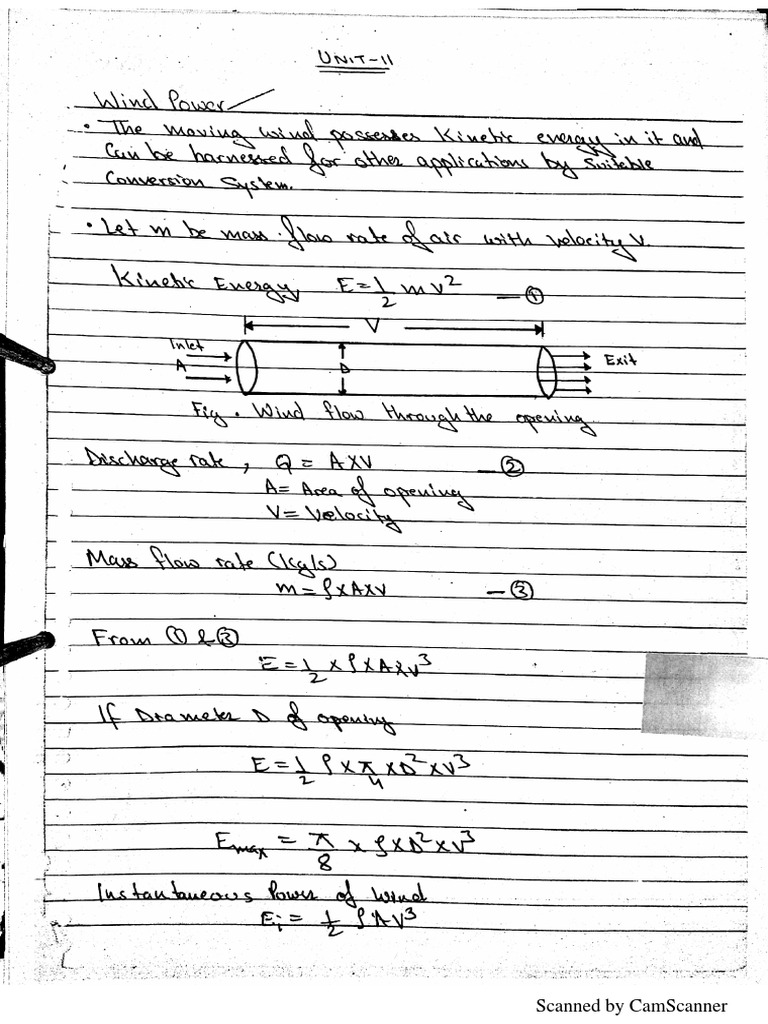 UNIT-II
Wind Power
• The moving wind possesses Kinetic energy in it and
Can be harnessed for other applications by Suitable
Conversion System.
• Let m be mass flow rate of air with velocity V.
Kinetic Energy E = 1/2 m v² — ①
V
Inlet
A
D
Exit
Fig. Wind flow through the opening
Discharge rate, Q = A×V — ②
A = Area of opening
V = Velocity
Mass flow rate (kg/s)
m = ρ×A×V — ③
From ① & ③
E = 1/2 × ρ×A×V³
If Diameter D of opening
E = 1/2 ρ × π/4 × D² × V³
Emax = π/8 × ρ×D²×V³
Instantaneous Power of Wind
Ei = 1/2 ρAV³
Scanned by CamScanner